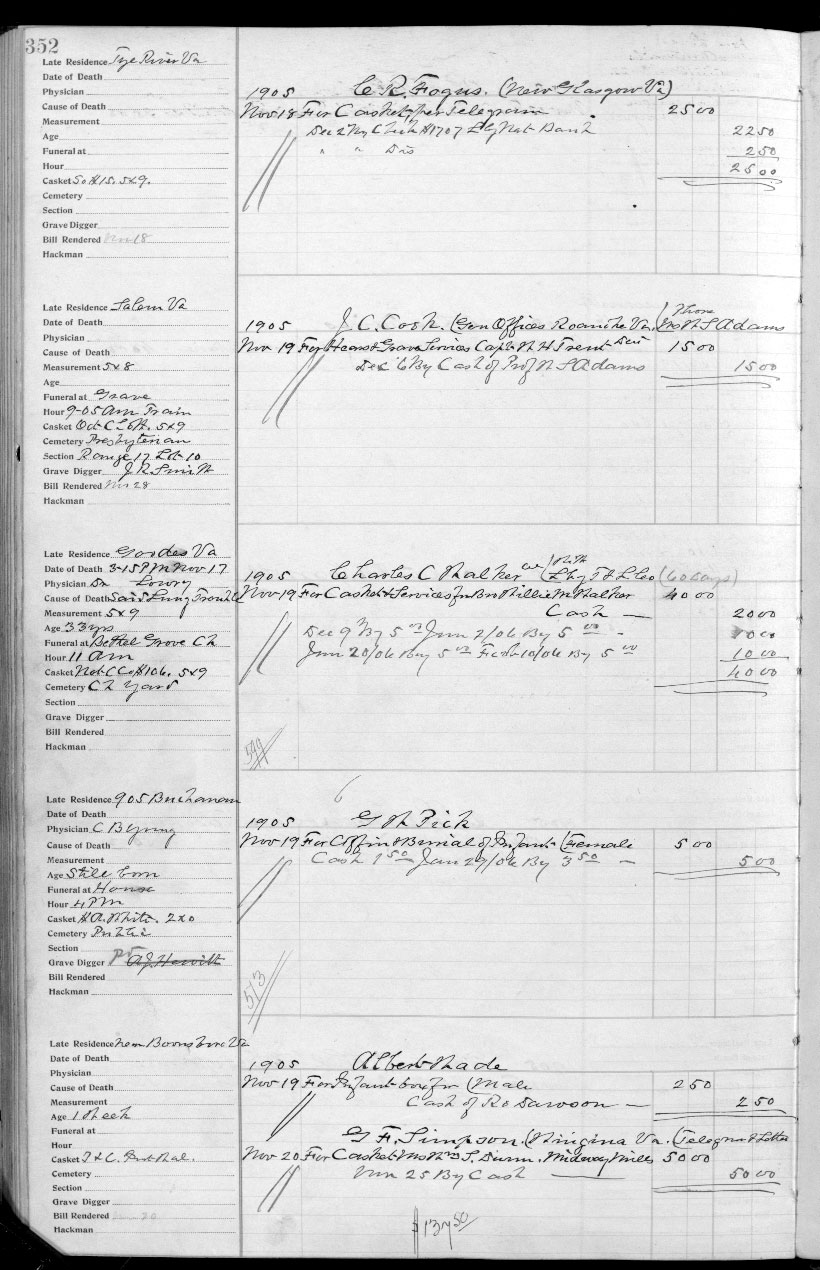 352
Late Residence Tye River Va
Date of Death
Physician
Cause of Death
Measurement
Age
Funeral at
Hour
Casket So H 15. 5x9.
Cemetery
Section
Grave Digger
Bill Rendered Nov 18
Hackman
1905 C. R. Fogus. (New Glasgow Va)
Nov 18 For Casket per Telegram 25 00
Dec 2 By Check #1707 Nat Bank 22 50
" " Dis 2 50
25 00
Late Residence Salem Va
Date of Death
Physician
Cause of Death
Measurement 5x8
Age
Funeral at Grave
Hour 9-05 Am Train
Casket Oct C 5x9
Cemetery Presbyterian
Section Range 17 Lot 10
Grave Digger J. R. Smith
Bill Rendered Nov 28
Hackman
1905 J. C. Cook. (Gen Offices Roanoke Va. Adams
Nov 19 For Hearse & Grave Services Capt W H Trent 15 00
Dec 6 By Cash of Prof Adams 15 00
Late Residence Goodes Va
Date of Death 3-15 PM Nov 17
Physician Dr Lowry
Cause of Death Said Lung Trouble
Measurement 5x9
Age 33 yrs
Funeral at Bethel Grove Ch
Hour 11 am
Casket Nat C Co #106. 5x9
Cemetery Ch Yard
Section
Grave Digger
Bill Rendered
Hackman
1905 Charles C Walker (With Lbg T & L Co (60 days)
Nov 19 For Casket & Services for Bro Willie M Walker 40 00
Cash — 20 00
Dec 9 By 5 00 Jan 2/06 By 5 00 - 10 00
Jan 20/06 By 5 00 Feb 10/06 By 5 00 10 00
40 00
599
Late Residence 905 Buchanan
Date of Death
Physician C B Young
Cause of Death
Measurement
Age Still born
Funeral at House
Hour 4 PM
Casket White. 2x0
Cemetery Public
Section
Grave Digger A. J. Hewitt
Bill Rendered
Hackman
6
1905 G W Pick
Nov 19 For Coffin & Burial of Infant (Female 5 00
Cash 1 50 Jan 29/06 By 3 50 — 5 00
513
Late Residence near Boonsboro
Date of Death
Physician
Cause of Death
Measurement
Age 1 Week
Funeral at
Hour
Casket
Cemetery
Section
Grave Digger
Bill Rendered
Hackman
1905 Albert Wade
Nov 19 For Infant box for (Male 2 50
Cash of Ro Dawson — 2 50
G. F. Simpson. (Wingina Va. (Telegram & Letter
Nov 20 For Casket Mrs S. Dunn. Midway Mills 50 00
Nov 25 By Cash — 50 00
$137 50